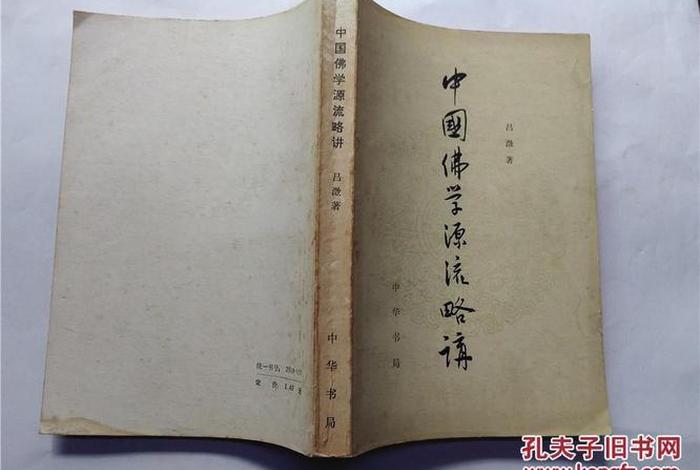 中国佛学源流略讲
吕澂著
中华书局
中國佛学源流略講
吕澂著
中华书局
统一书号：
定价：1.40元
孔夫子旧书网